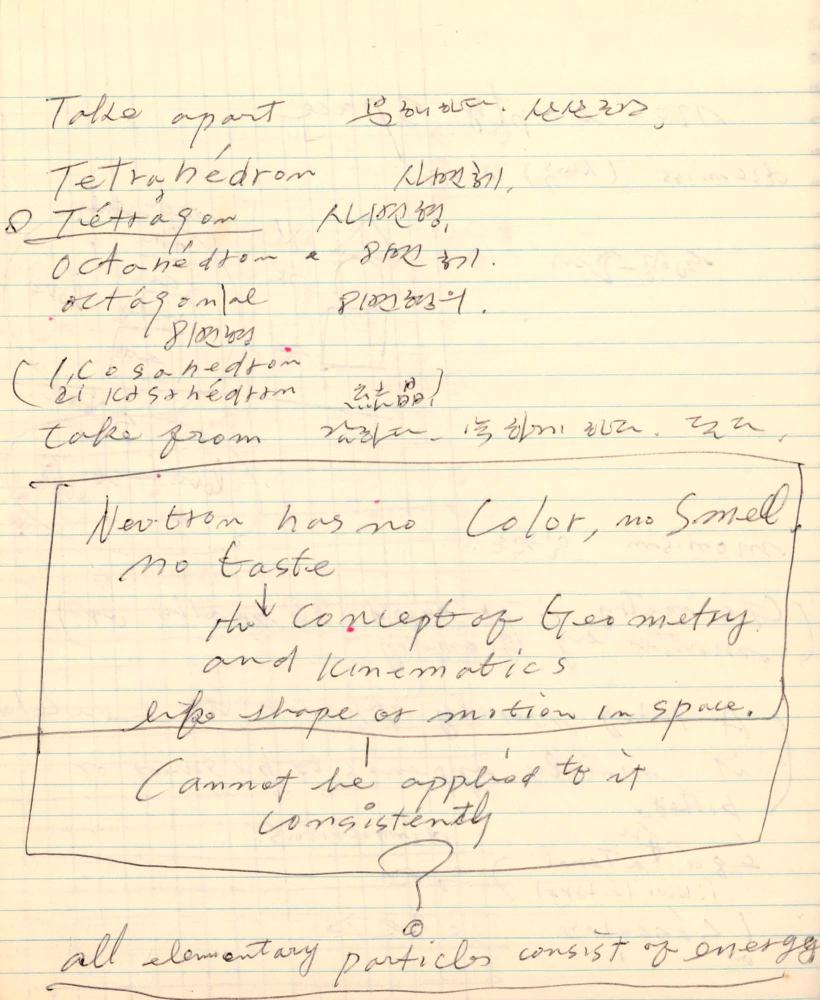 Take apart 분해하다.
Tetrahédron 사면체.
Tétrágon 사변형.
Octahédron 8면체.
octágon|al 8변형의.
8변형
( I,Cosahedron
Ikosahédron 結晶)
take from 감하다. 약하게 하다.
Neutron has no Color, no Smell.
no taste
the Concept of Geometry
and kinematics
like shape or motion in space.
Cannot be applied to it
consistently
all elementary particles consist of energy